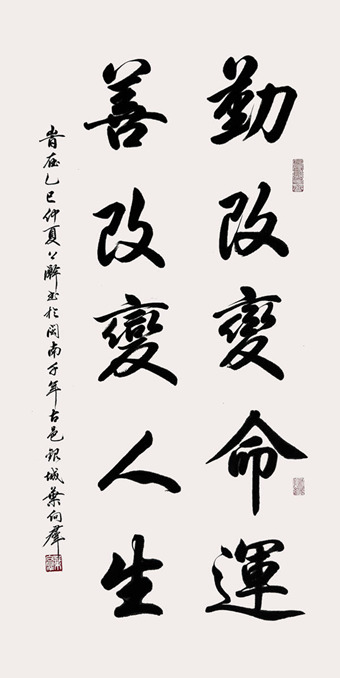 勤改變命運
善改變人生
歲在乙巳仲夏書於閩南千年古邑銀城葉向群